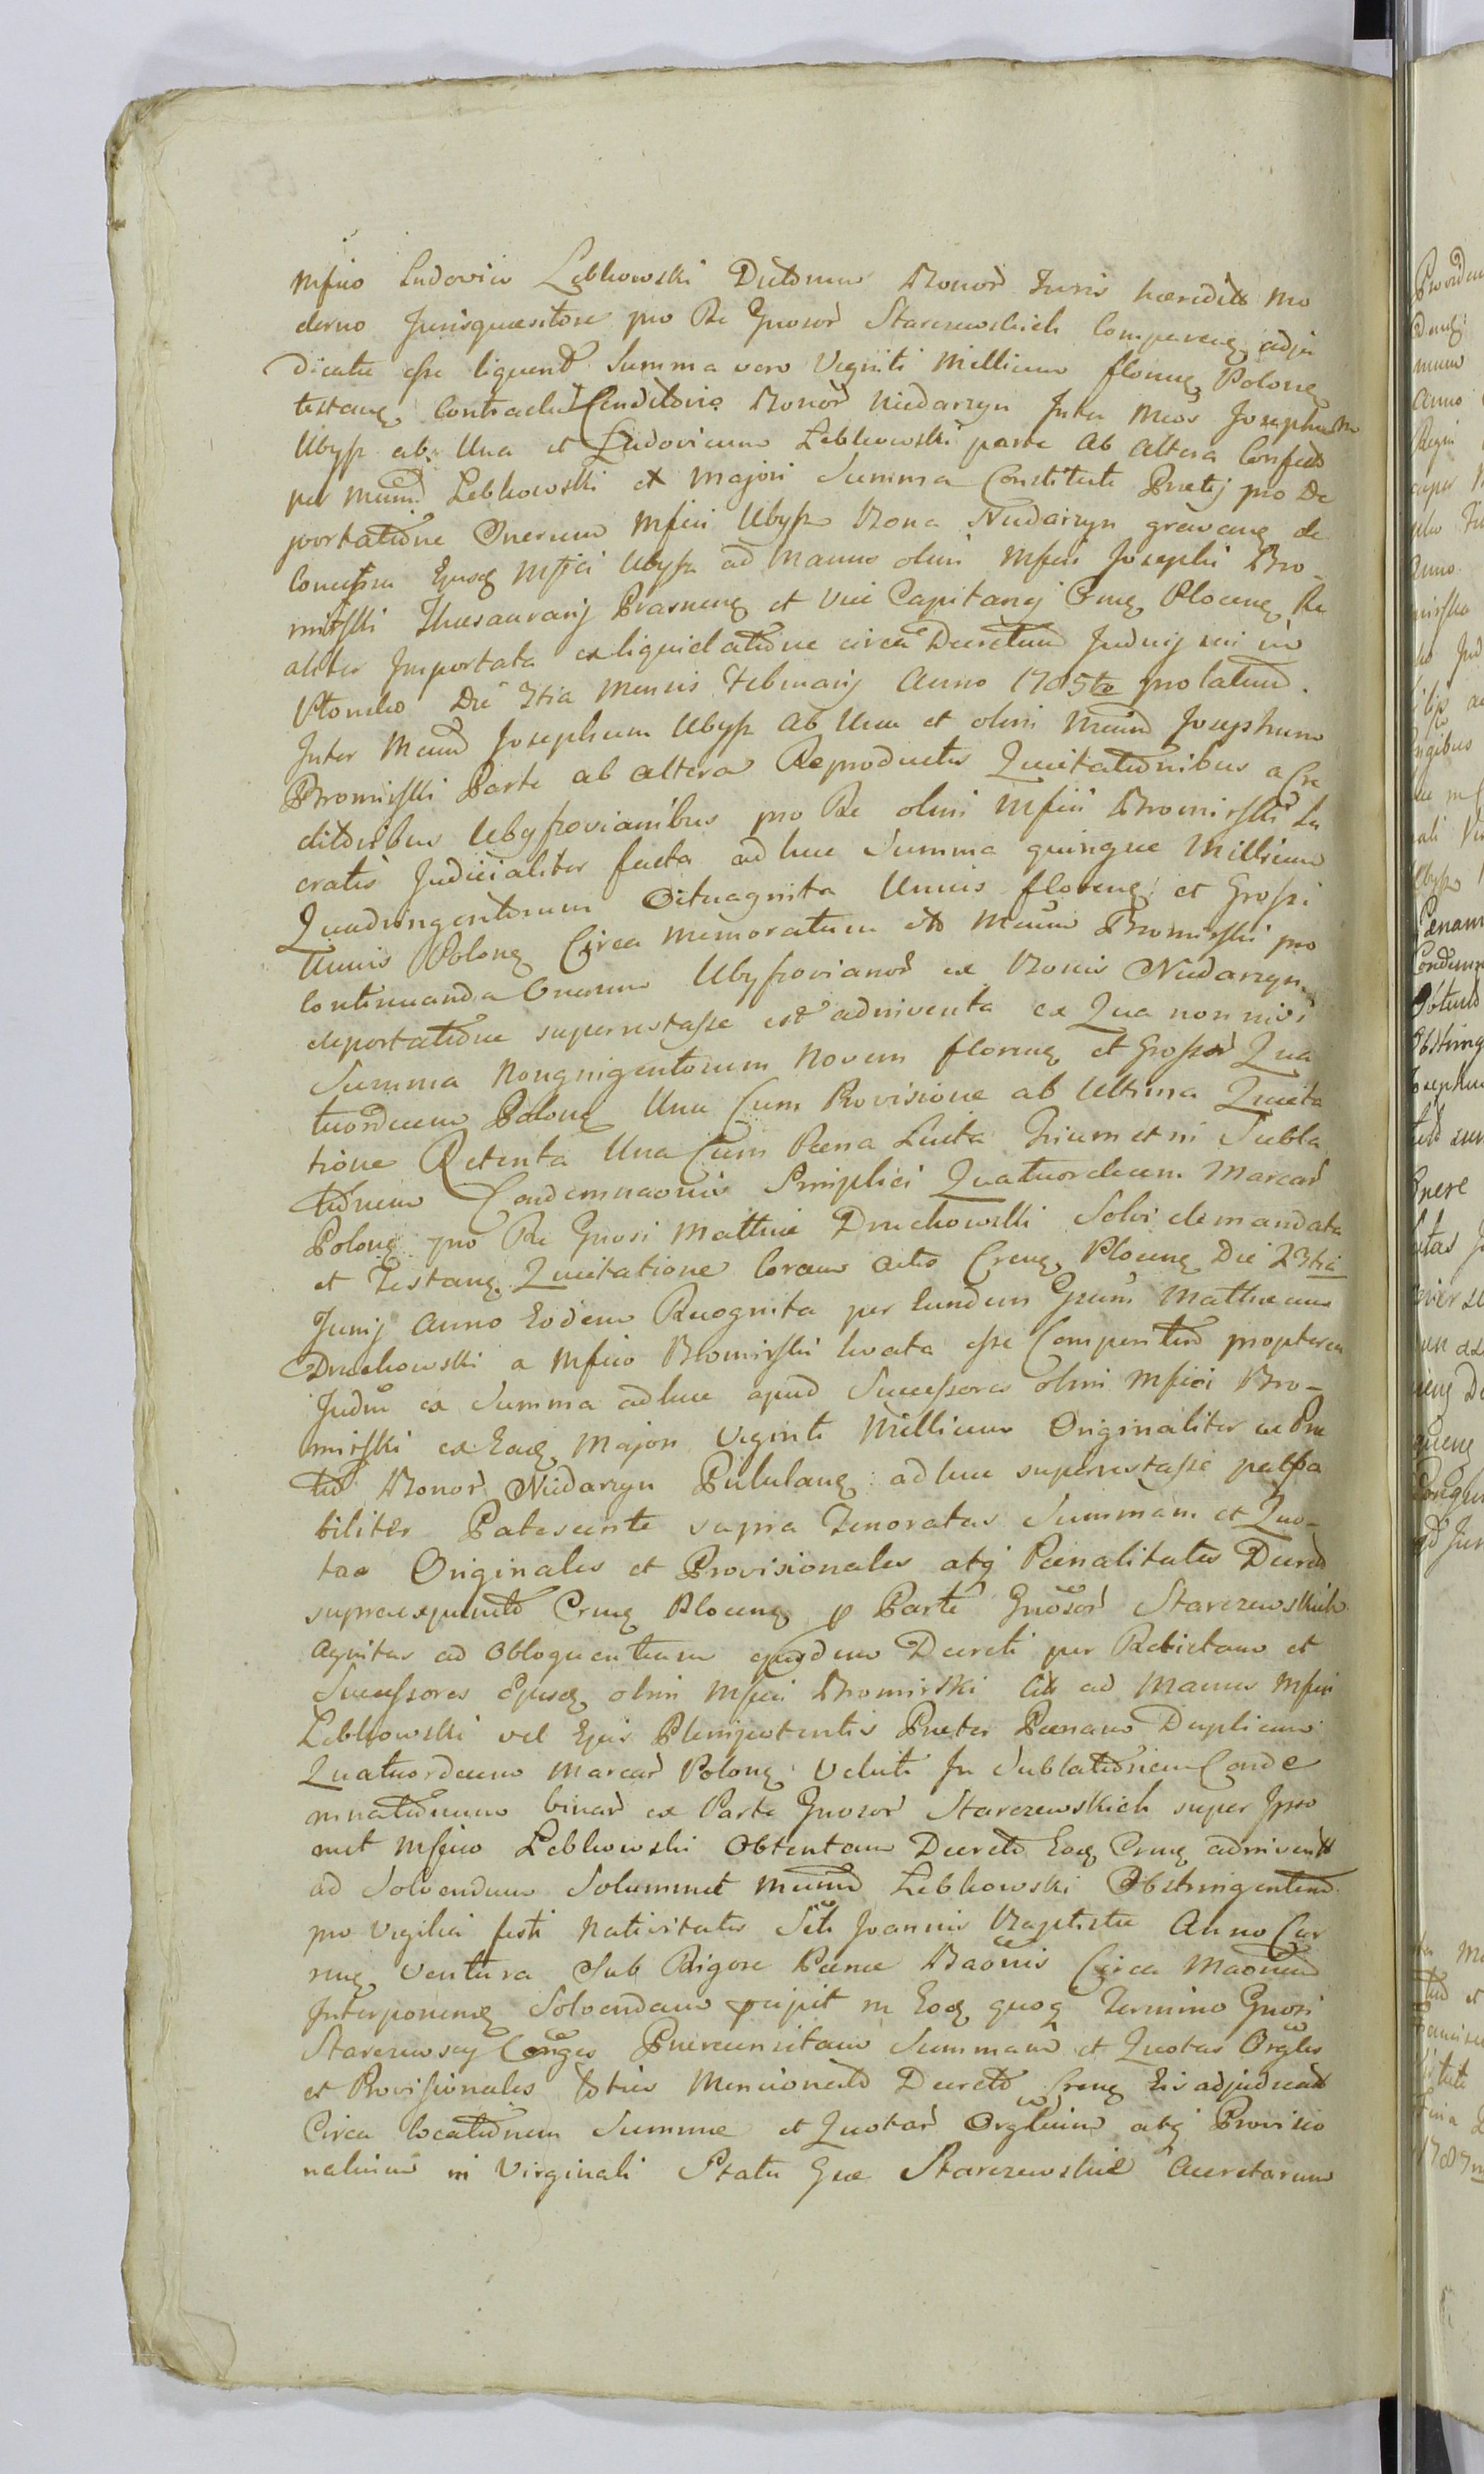 Mfico Ludovico Lebkowski Dictorum Bonor Juris haeredit mo
derno Jurisquaesitore pro Re Gnosor Starczewskich Compareng adju
dicatu esse liquent Summa vero Viginti Millium floreng Poloneg
testang Contractu Venditorio Bonor Niedarzyn Inter Mcos Josephum
Ubysz ab Una et Ludovicum Lebkowski parte ab altera Confecto
per Mcum Lebkowski ex majori Summa Constituti Pretij pro De
portatione Onerum Mfici Ubysz Bona Niedarzyn gravang de
Concessu Ejusq Mfici Ubysz ad Manus olim Mfici Josephi Bro
mirski Thesaurarij Prasneng et Vice Capitanej Creng Ploceng Re
aliter Importata ex liquidatione circa Decretum Judicij sui in
Płońsko Die 3tia Mensis Februarij Anno 1785to prolatum.
Inter Mcum Josephum Ubysz ab Una et olim Mcum Josephum
Bromirski Parte ab altera Reproductis Quietationibus a Cre
ditoribus Ubyszovianibus pro Re olim Mfici Bromirski La
cratis Judicialiter facta adhuc Summa quinque Millium
Quadringentorum Octuaginta Unius floreng et Grossi
Unius Poloneg Circa memoratum olim Mcum Bromirski pro
Continuanda Onerum Ubyszovianor ex Bonis Niedarzyn
deportatione superrestasse est adinventa ex Qua non nisi
Summa Nongentorum Novem floreng et Grossor Qua
tuordecim Poloneg Una Cum Provisione ab Ultima Quieta
tione Retenta Una Cum Poena Luita Trium et in Subla
tionem Condemnaonis Simplici Quatuordecim Marcar
Poloneg pro Re Gnosi Mathiae Druchowski Solvi demandata
et Testang Quietatione Coram Actis Creng Ploceng Die 23tia
Junij Anno Eodem Recognita per Eundem Gnum Mathiam
Druchowski a Mfico Bromirski levata esse Competitum propterea
Judm ex Summa adhuc apud Successores olim Mfici Bro-
mirski ex Eaq Majori Viginti Millium Originaliter ex Pre
tio Bonor Niedarzyn Pullulang adhuc superrestasse palpa
biliter Patescente supra Tenoratas Summam et Quo-
tas Originales et Provisionales atq Poenalitates Decreto
supraexpresso Creng Ploceng p Parte Gnosor Starczewskich
Agnitas ad Obloquentiam ejusdem Decreti per Relictam et
Successores Ejusq olim Mfici Bromirski Citt ad Manus Mfici
Lebkowski vel Ejus Plenipotentis Praeter Poenam Duplicem
Quatuordecim Marcar Poloneg Veluti In Sublationem Conde
mnationum binar ex Parte Gnosor Starczewskich super Ipso
met Mfico Lebkowski Obtentam Decreto Eoq Creng adinvent
ad Solvendum Solummet Mcum Lebkowski Obstringentem
pro Vigilia festi Nativitatis Scti Joannis Baptistae Anno Cur
reng Ventura Sub Rigore Poenae Baonis Circa Maonem
Interponeng Solvendam pcipit in Eoq quoq Termino Gnosi
Starczewscy Conges Praerecensitam Summam et Quotas Orgles
et Provisionales toties Mencionato Decreto Creng Eis adjudicat
Circa locationem Summae et Quotar Orglium atq Provisio
nalium in Virginali Statu Gnae Starczewskie Accretarum